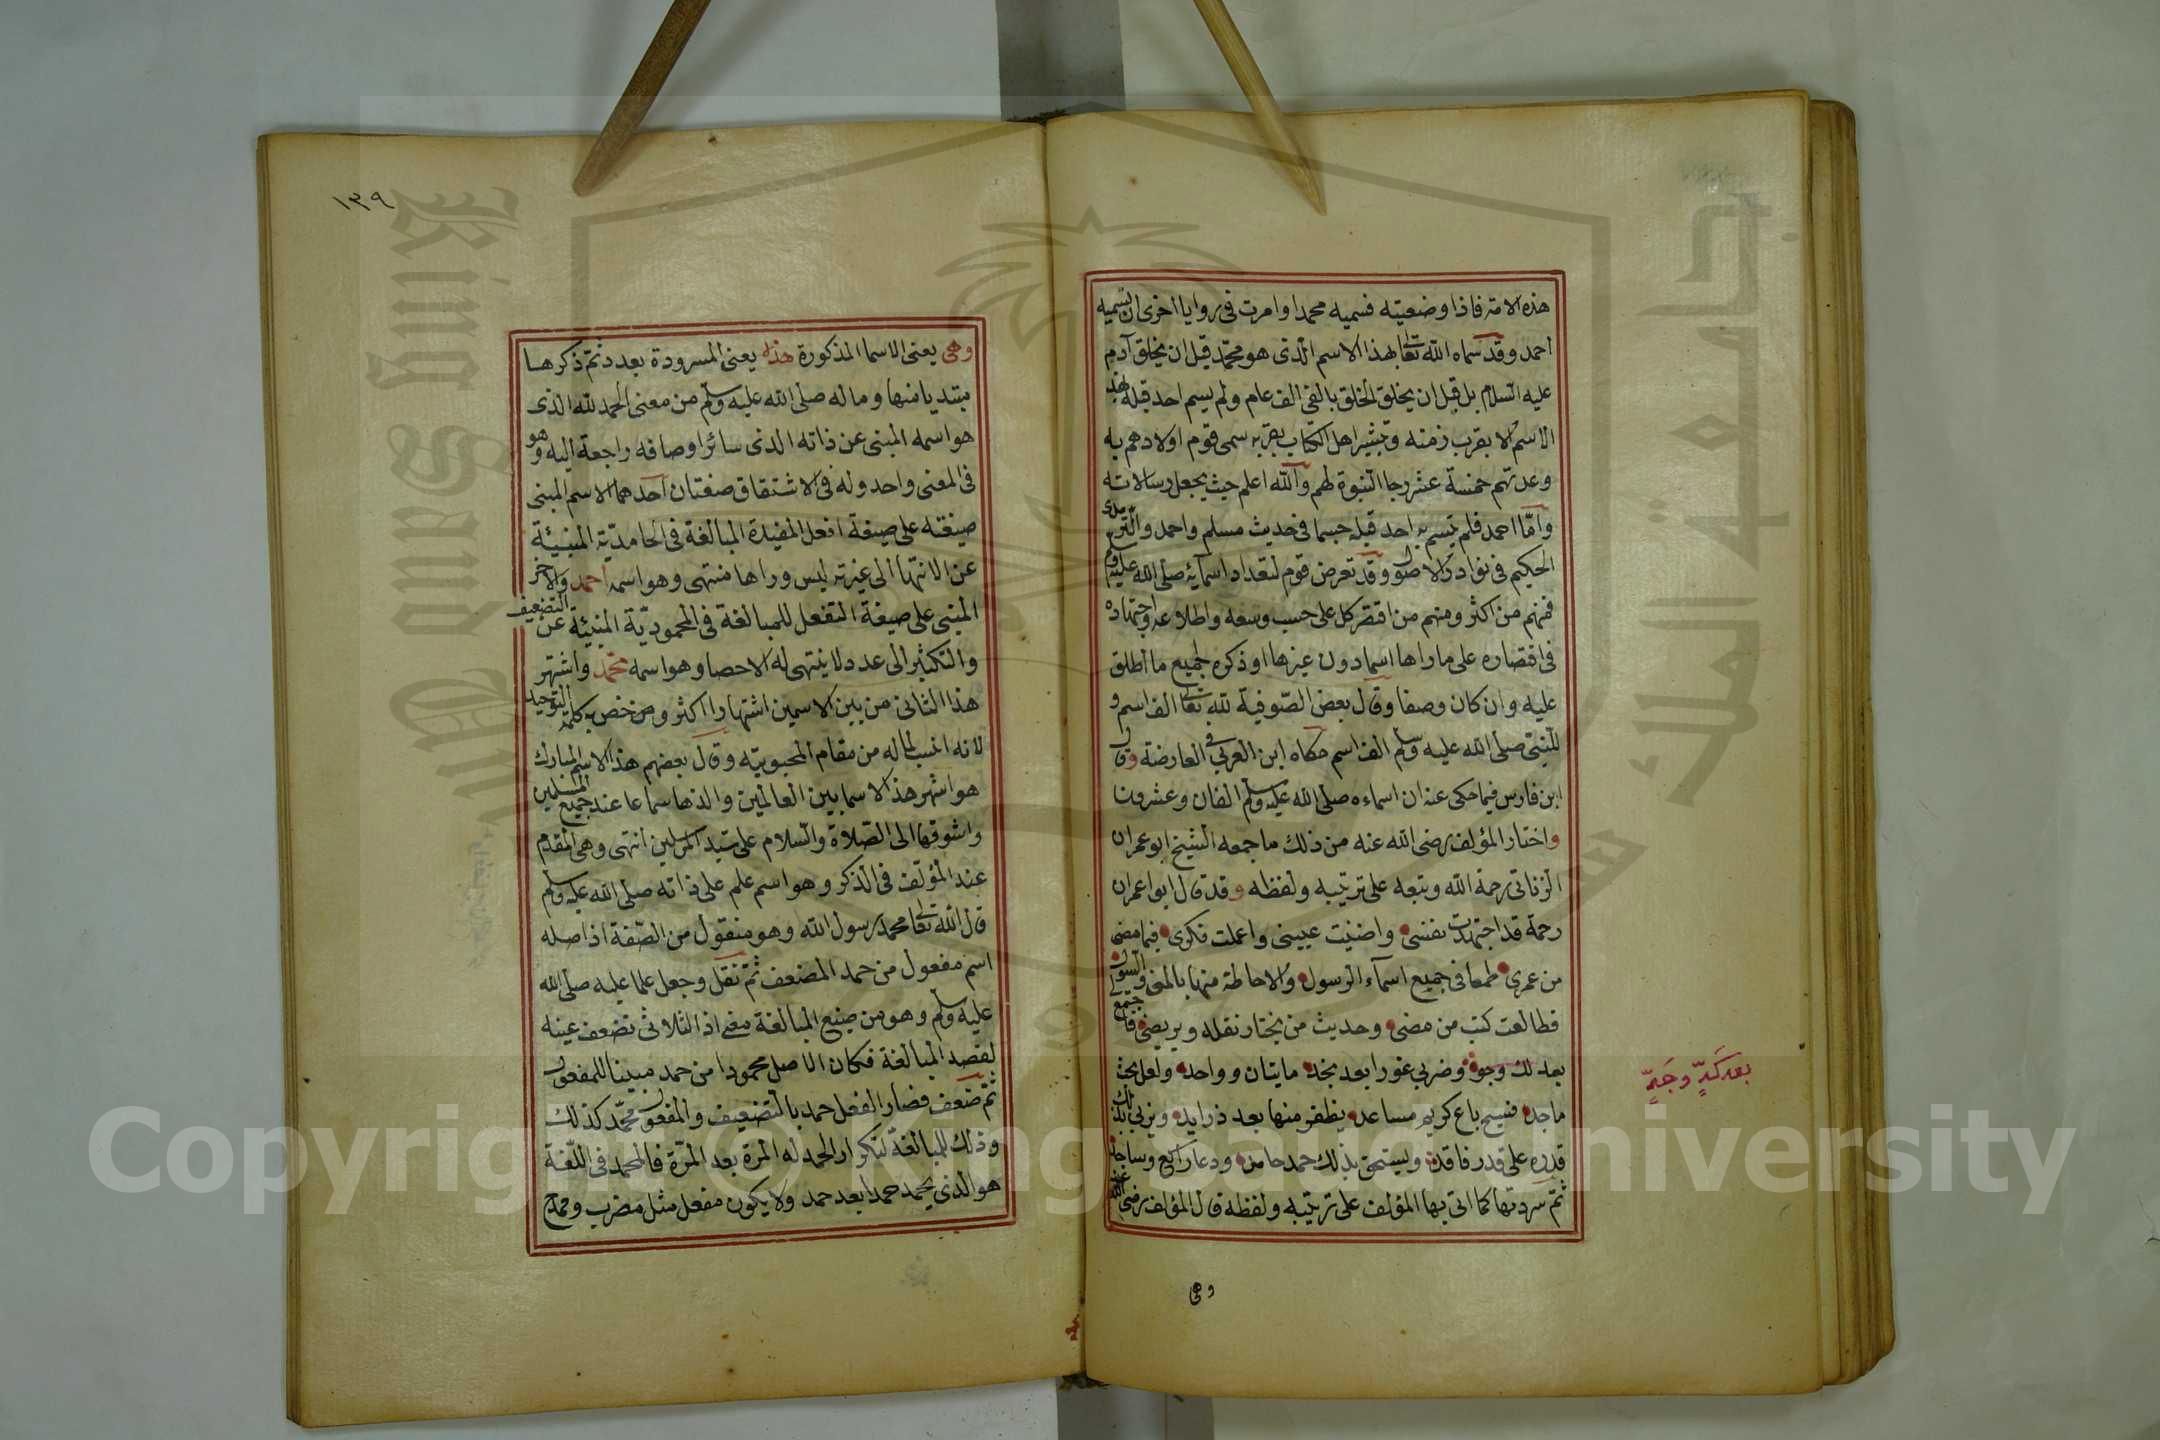 هذه الامة فاذا وضعتيه فسميه محمدا وامرت فى روايا اخرى ان تسميه
احمد وقد سماه الله تعالى بهذا الاسم الذى هو محمد قبل ان يخلق آدم
عليه السلام بل قبل ان يخلق الخلق بالفى الف عام ولم يسم احد قبله بهذ
الاسم الا بقرب زمنه وتبشير اهل الكتاب بقربه سمى قوم اولادهم به
وعدتهم خمسة عشر رجا النبوة لهم والله اعلم حيث يجعل رسالاته
وامّا احمد فلم يتسم به احد قبله حسبما فى حديث مسلم واحمد والترمدى
الحكيم فى نوادر الاصول وقد تعرض قوم لتعداد اسمايه صلى الله عليه وسلم
فمنهم من اكثر ومنهم من اقتصر كل على حسب وسعه واطلاعه واجتهاده
فى اقتصاره على ماراها اسما دون غيرها او ذكره لجميع ما اطلق
عليه وان كان وصفا وقال بعض الصّوفية لله تعالى الف اسم و
للنبىّ صلى الله عليه وسلم الف اسم حكاه ابن العربي فى العارضة وقال
ابن فارس فيما حكى عنه ان اسماءه صلى الله عليه وسلم الفان وعشرون
واختار المؤلف رضى الله عنه من ذلك ما جمعه الشيخ ابو عمران
الزناتى رحمة الله وتبعه على ترتيبه ولفظه وقد قال ابوا عمران
رحمة قد اجتهدت نفسى واضنيت عيينى واعملت فكرى فيما مضى
من عمرى طمعا فى جميع اسمآء الرسول والاحاطة منها بالمنى والسّول
فطالعت كتب من مضى وحديث من يختار نقله ويريضى فاجتمع
بعد لك وجوة وضربى غورا بعد بخد مايتان وواحد ولعل بحث
ماجد فسيح باع كريم مساعد يظفر منها بعد ذرايد ويزبى بذلك
قدره على قدر فاقده وليستحق بذلك حمد حامد ودعا راكع وساجد
ثمّ سردتها كما اتى بها المؤلف على ترتيبه ولفظه قال المؤلف رضى الله عنه
وهى
بعد كَدٍّ وجَدٍّ
١٣٩
وهى يعنى الاسما المذكورة هذه يعنى المسرودة بعد ذ ثمّ ذكرها
مبتديا منها وماله صلى الله عليه وسلم من معنى الحمد لله الذى
هو اسمه المبنى عن ذاته الذى سائر اوصافه راجعة اليه وهو
فى المعنى واحد وله فى الاشتقاق صفتان احدهما الاسم المبنى
صيغته على صيغة افعل المفيدة المبالغة فى الحامديّة المنبئة
عن الانتها الى غيرته ليس وراها منتهى وهو اسمه احمد والاخر
المبنى على صيغة التفعل للمبالغة فى المحموديّة المنبئة عن التضعيف
والتكثير الى عدد لا ينتهى له الاحصا وهو اسمه محمد واشتهر
هذا الثانى من بين الاسمين اشتهارا اكثر ومن خص به كلمة التوحيد
لانه انسب لماله من مقام المحبوبيّه وقال بعضهم هذا الاسم المبارك
هو اشهر هذ الاسما بين العالمين والذها سماعا عند جميع المسلمين
واشوقها الى الصّلاة والسّلام على سيّد المرسلين انتهى وهى المقدم
عند المؤلّف فى الذكر وهو اسم علم على ذاته صلى الله عليه وسلم
قال الله تعالى محمد رسول الله وهو منقول من الصّفة اذ اصله
اسم مفعول من حمد المضعف ثمّ نقل وجعل علما عليه صلى الله
عليه وسلم وهو من صيغ المبالغة معنى اذ الثلاثى تضعف عينه
لقصد المبالغة فكان الاصل محمودا من حمد مبينا للمفعول
ثمّ ضعف فصار الفعل حمد بالتضعيف والمفعول محمّد كذلك
وذلك للمبالغة لتكرار الحمد له المرّة بعد المرّة فالمحمد فى اللّغة
هو الذى يحمد حمدا بعد حمد ولا يكون مفعل مثل مضرب وممدح